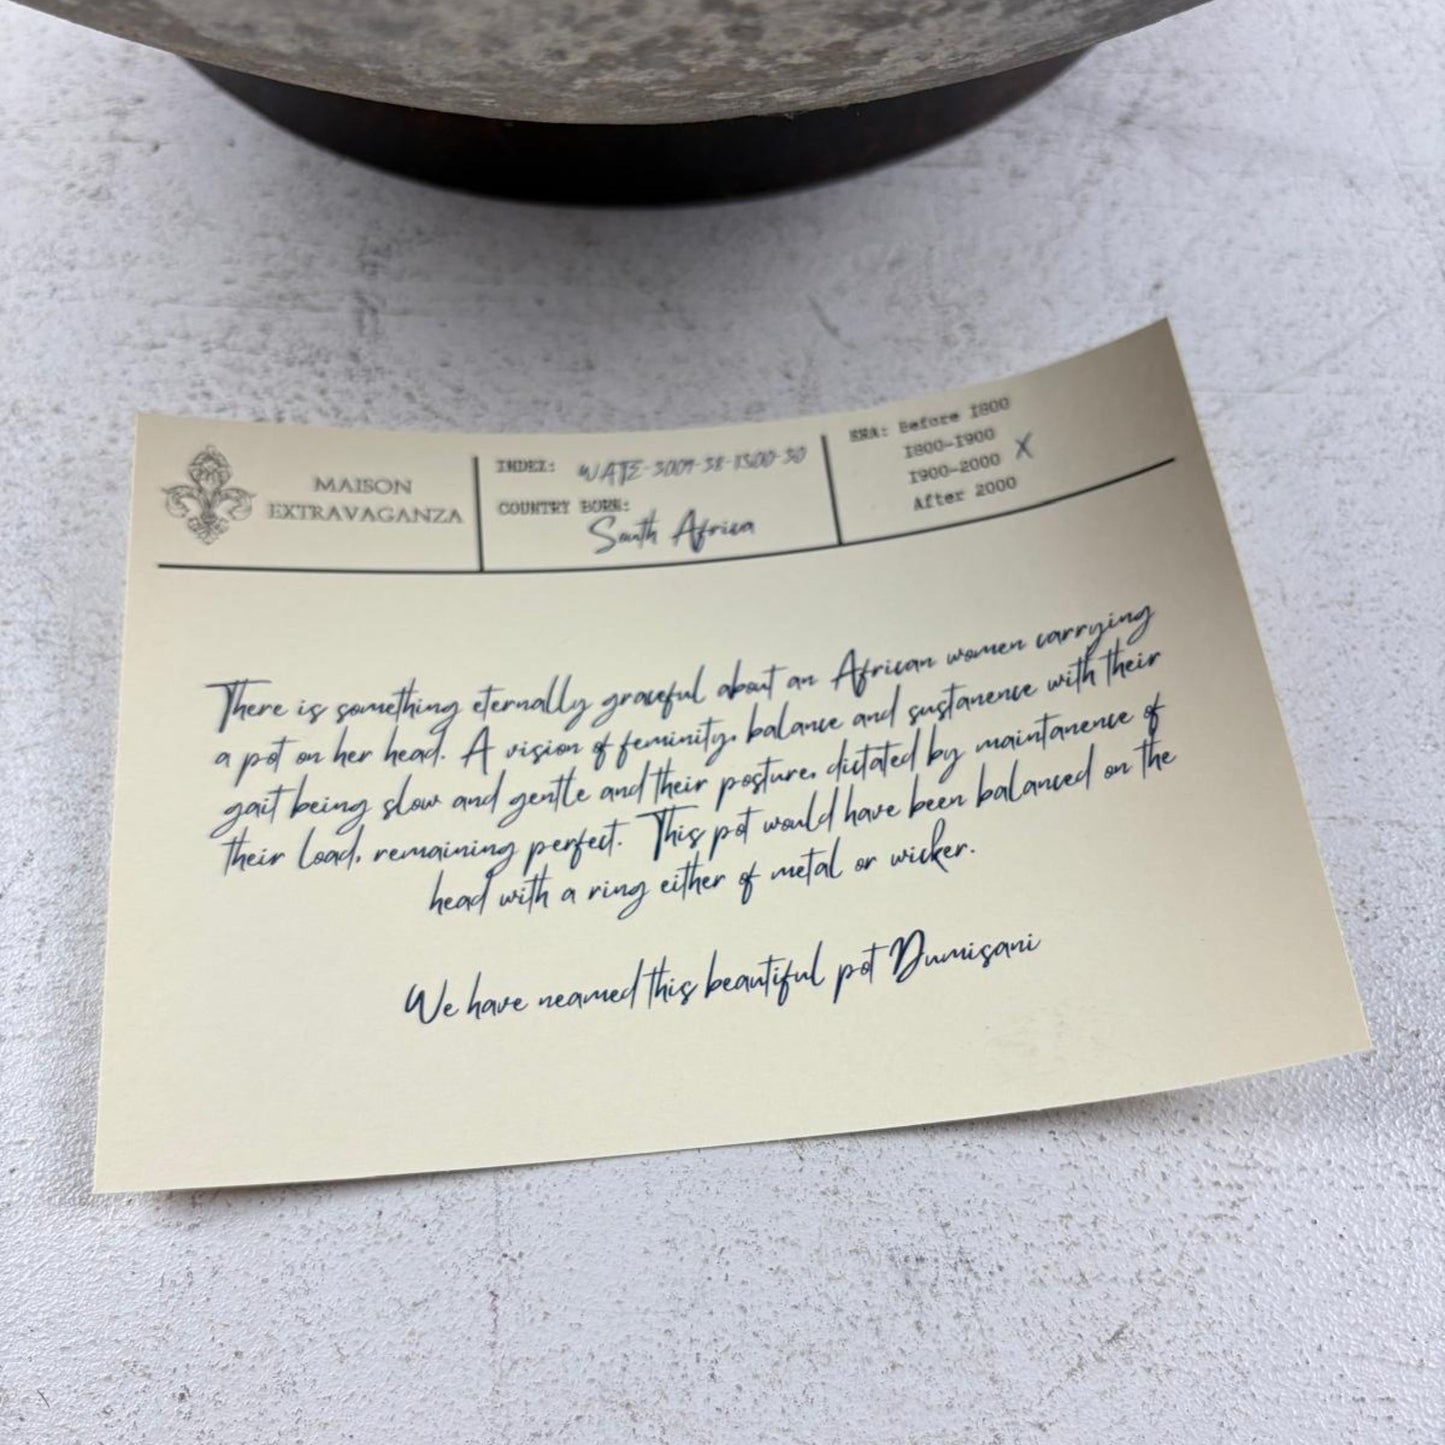 MAISON
EXTRAVAGANZA
INDEX:
COUNTRY BORN:
South Africa
ERA: Before 1800
1800-1900
1900-2000 X
After 2000
There is something eternally graceful about an African women carrying
a pot on her head. A vision of feminity, balance and sustanence with their
gait being slow and gentle and their posture, dictated by maintanence of
their load, remaining perfect. This pot would have been balanced on the
head with a ring either of metal or wicker.
We have neamed this beautiful pot Dumisani